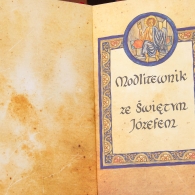 Modlitewnik
ze Świętym
Józefem